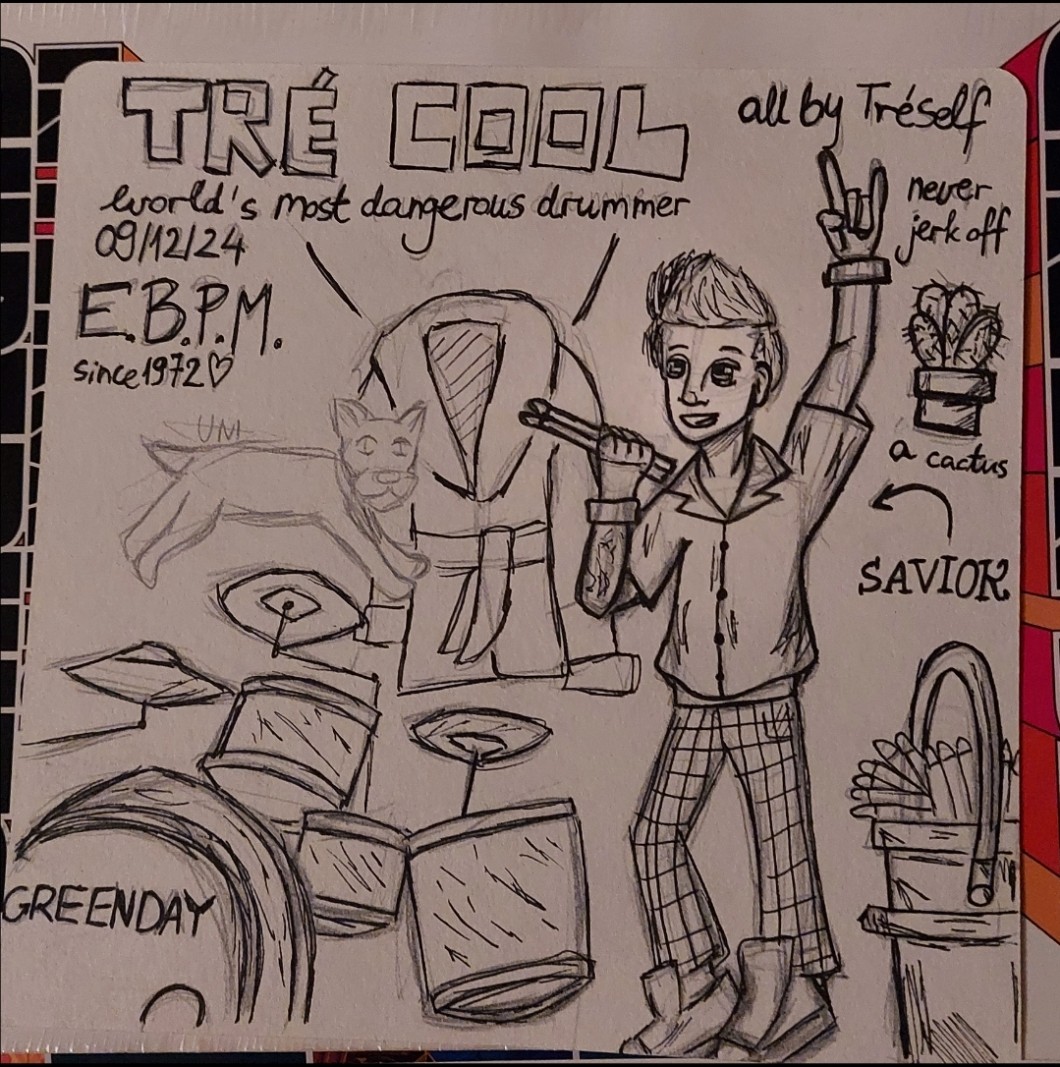 TRÉ COOL
all by Tréself
world's most dangerous drummer
never
jerk off
09/12/24
E.B.P.M.
since 1972♡
UNI
a cactus
SAVIOR
GREENDAY